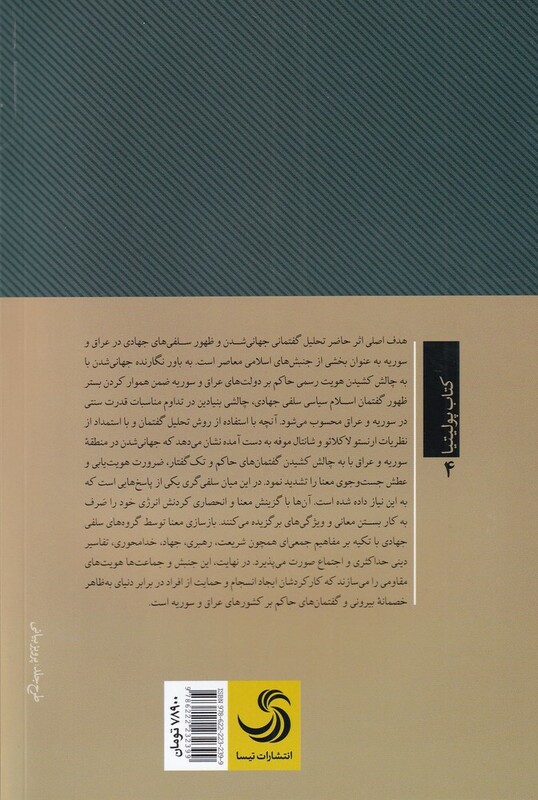 هدف اصلی اثر حاضر تحلیل گفتمانی جهانی‌شدن و ظهور سلفی‌های جهادی در عراق و
سوریه به عنوان بخشی از جنبش‌های اسلامی معاصر است. به باور نگارنده جهانی‌شدن با
به چالش کشیدن هویت رسمی حاکم بر دولت‌های عراق و سوریه ضمن هموار کردن بستر
ظهور گفتمان اسلام سیاسی سلفی جهادی، چالشی بنیادین در تداوم مناسبات قدرت سنتی
در سوریه و عراق محسوب می‌شود. آنچه با استفاده از روش تحلیل گفتمان و با استمداد از
نظریات ارنستو لاکلائو و شانتال موفه به دست آمده نشان می‌دهد که جهانی‌شدن در منطقهٔ
سوریه و عراق با به چالش کشیدن گفتمان‌های حاکم و تک‌گفتار، ضرورت هویت‌یابی و
عطش جست‌وجوی معنا را تشدید نمود. در این میان سلفی‌گری یکی از پاسخ‌هایی است که
به این نیاز داده شده است. آن‌ها با گزینش معنا و انحصاری کردنش انرژی خود را صرف
به کار بستن معانی و ویژگی‌های برگزیده می‌کنند. بازسازی معنا توسط گروه‌های سلفی
جهادی با تکیه بر مفاهیم جمعی‌ای همچون شریعت، رهبری، جهاد، خدامحوری، تفاسیر
دینی حداکثری و اجتماع صورت می‌پذیرد. در نهایت، این جنبش و جماعت‌ها هویت‌های
مقاومی را می‌سازند که کارکردشان ایجاد انسجام و حمایت از افراد در برابر دنیای به‌ظاهر
خصمانهٔ بیرونی و گفتمان‌های حاکم بر کشورهای عراق و سوریه است.
کتاب پولیتیا
۴
طرح جلد: پرویز بیانی
انتشارات تیسا
ISBN 978-622-223-239-9
9786222232399
۷۸۹۰۰ تومان